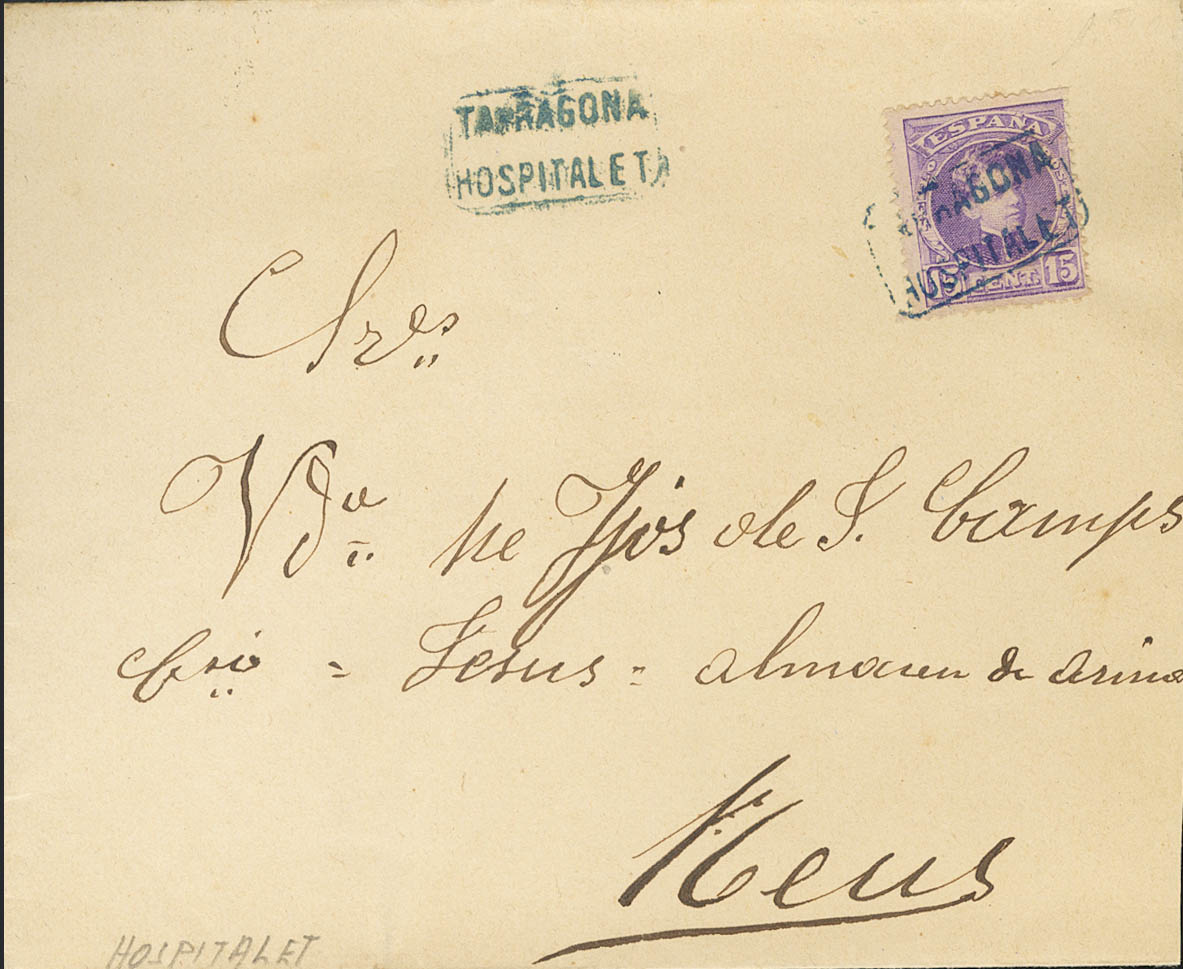 TARRAGONA
HOSPITALET
ESPAÑA
TARRAGONA
HOSPITALET
15 CENT. 15
Sres
Vda he Yjos de J. Camps
Jesus = almacen de arina
Reus
HOSPITALET